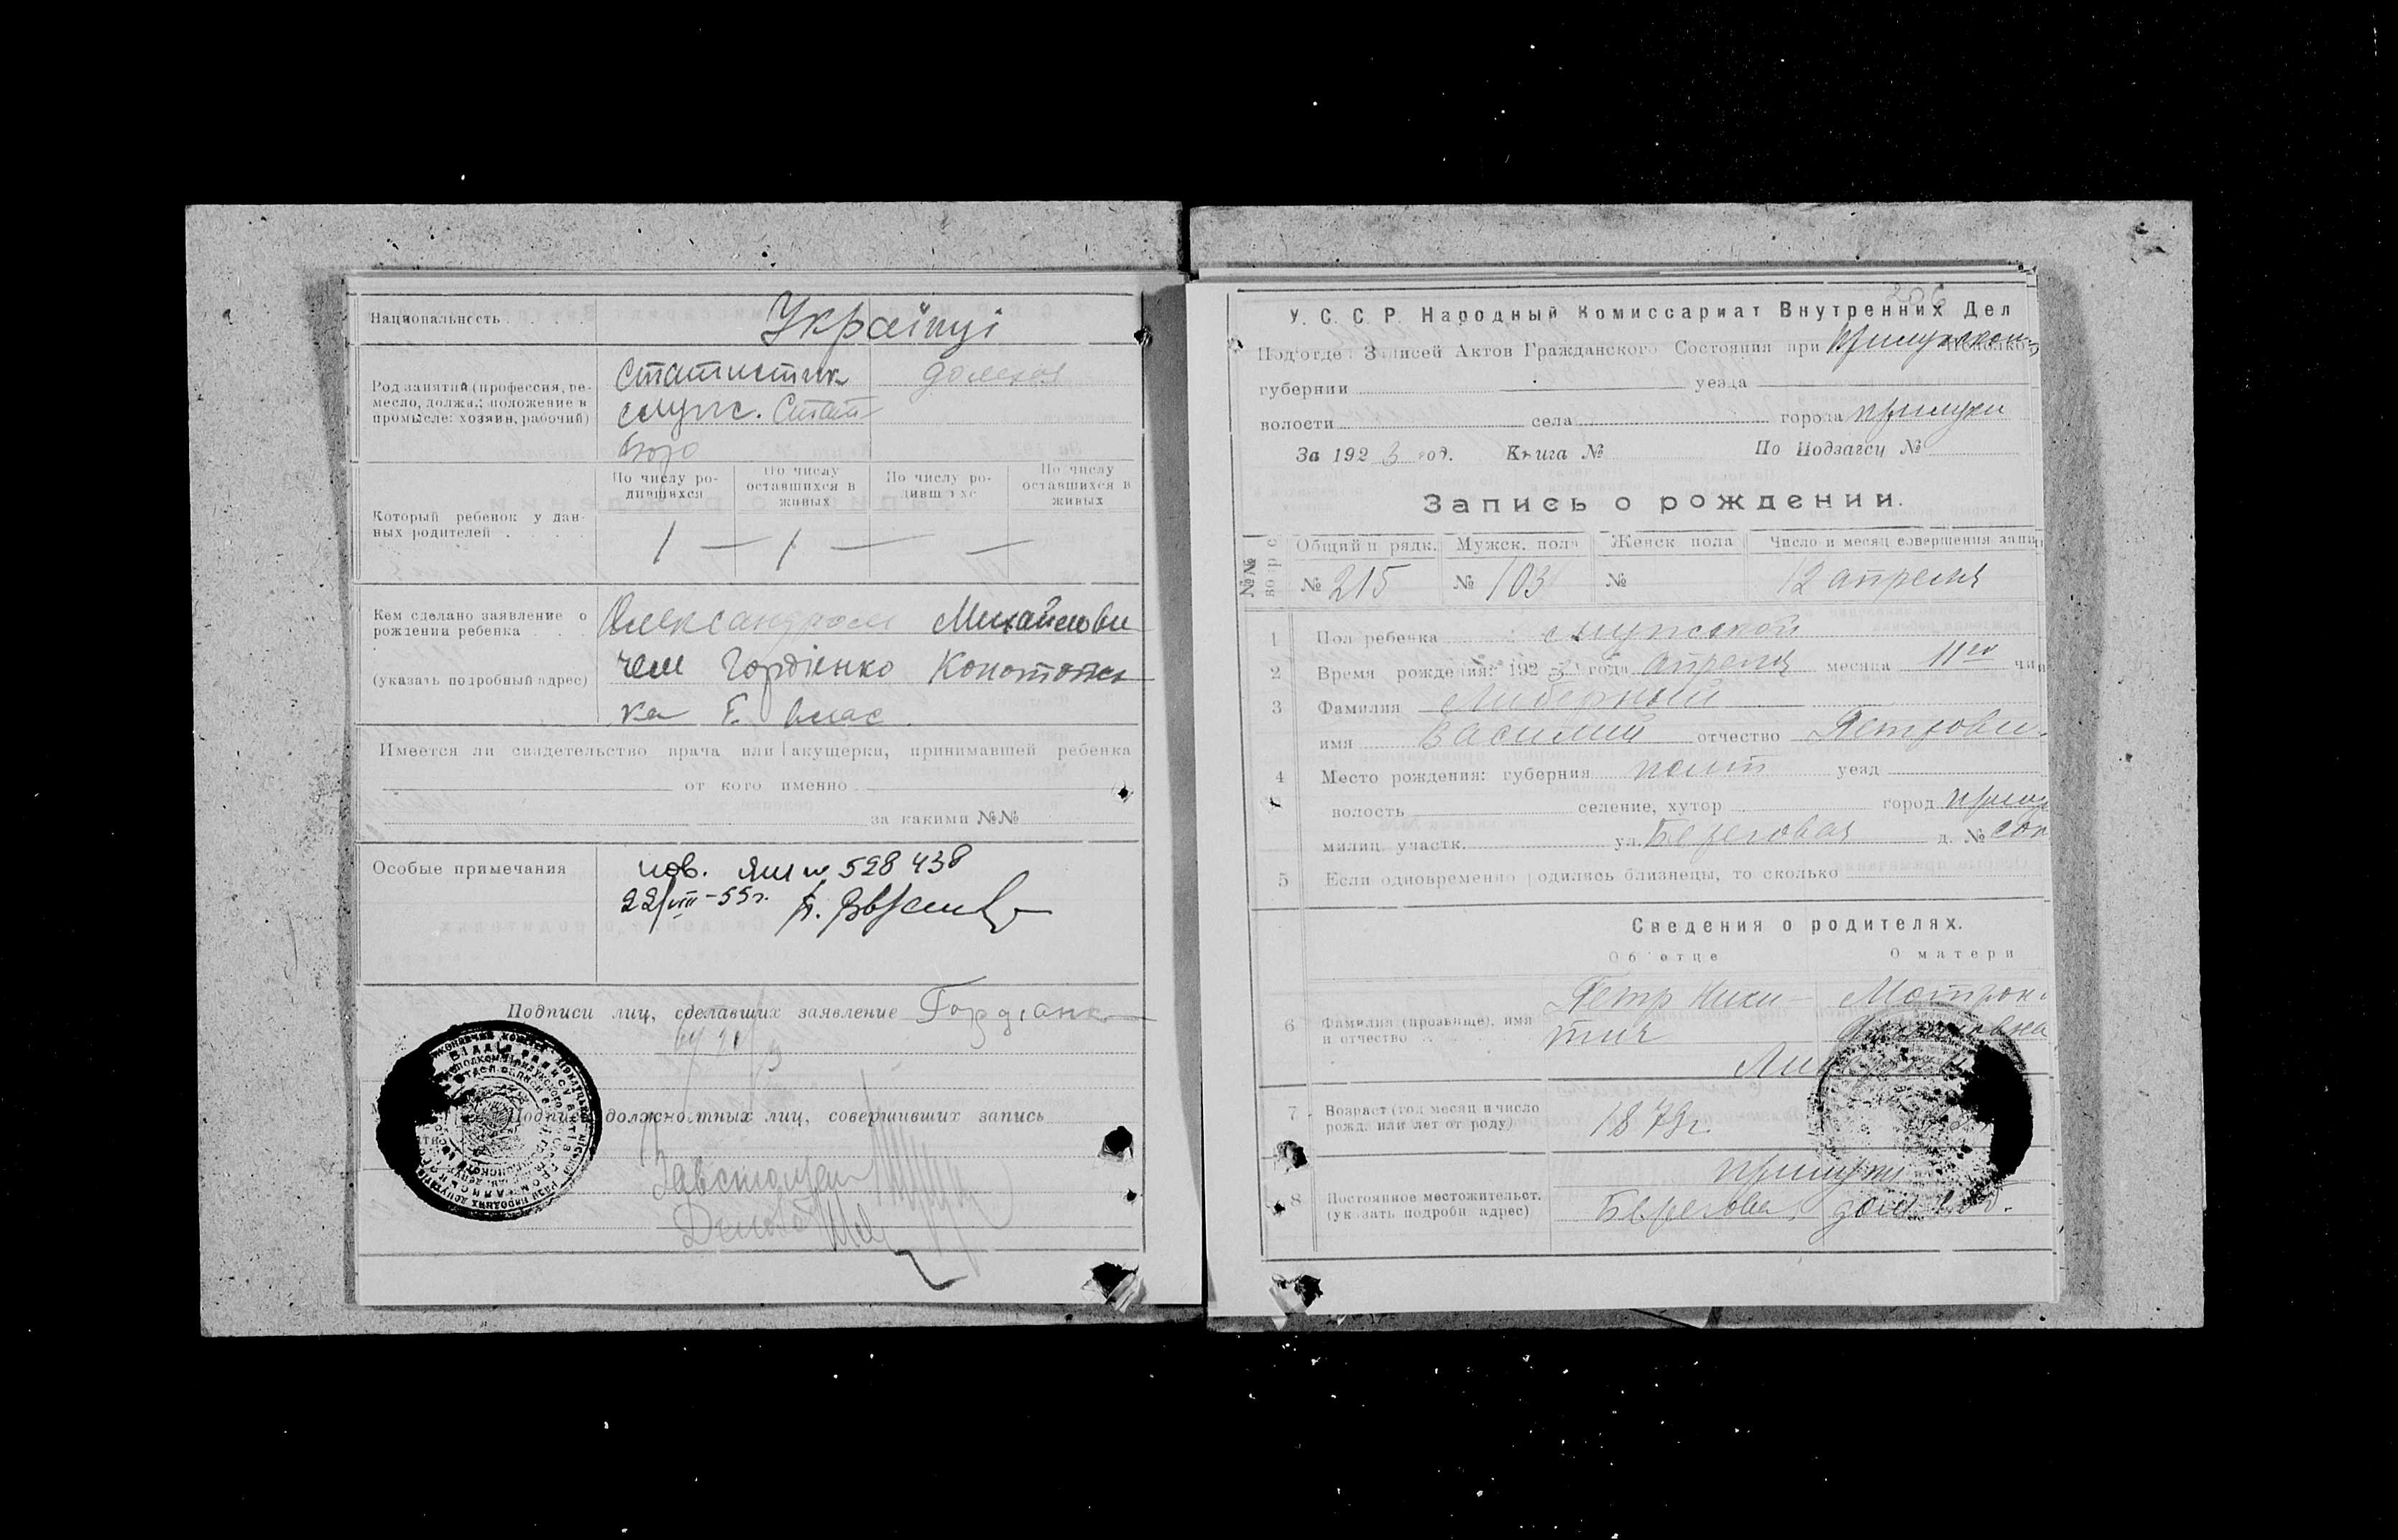 Национальность
Українці
Род занятий (профессия, ре-
месло, должн.; положение в
промысле: хозяин, рабочий)
Статистик
служ. Стат
бюро
домохоз
По числу ро-
дившихся
По числу
оставшихся в
живых
По числу ро-
дивш хс
По числу
оставшихся в
живых
Который ребенок у дан-
ных родителей
1 — 1 — —
Кем сделано заявление о
рождении ребенка
(указать подробный адрес)
Александром Михайлови
чем Гордіенко Конотопск
Имеется ли свидетельство врача или акушерки, принимавшей ребенка
от кого именно
за какими №№
Особые примечания
528438
22/VIII-55г.
Подписи лиц, сделавших заявление
Подписи должностных лиц, совершивших запись
206
У. С. С. Р. Народный Комиссариат Внутренних Дел
Подотдел Записей Актов Гражданского Состояния при Прилукском
губернии уезда
волости села города Прилуки
За 1923 год. Книга № По Подзагсу №
Запись о рождении.
№№
Общий п рядк. Мужск. пола Женск пола Число и месяц совершения запи
№ 215 № 103 № 12 апреля
1 Пол ребенка мужской
2 Время рождения: 1923 года апреля месяца 11го чи
3 Фамилия
имя Василий отчество Петрови
4 Место рождения: губерния Полт уезд
волость селение, хутор город Прилу
милиц. участк. ул. Береговая д. № соб
5 Если одновременно родились близнецы, то сколько
Сведения о родителях.
Об отце О матери
6 Фамилия (прозвище), имя
и отчество
Петр Ники-
тич
Мотрон
7 Возраст (год месяц и число
рожд. или лет от роду)
1879г.
8 Постоянное местожительст.
(указать подробн адрес)
Прилуки
Берегова, дом соб.